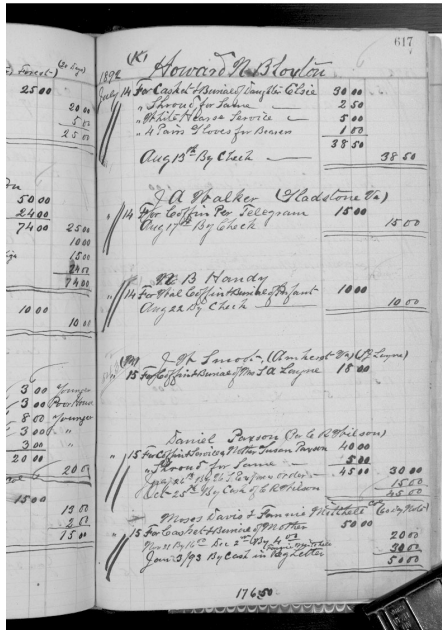 617
(K)
Howard N. Bloxton
1892
July 14 For Casket & Burial of Daughter Elsie 30 00
" Shroud for Same 2 50
" White Hearse Service 5 00
" 4 Pairs Gloves for Bearers 1 00
38 50
Aug 13th By Check 38 50
J A Walker (Gladstone Va)
" 14 For Coffin Per Telegram 15 00
Aug 17th By Check 15 00
B Handy
" 14 For Coffin & Burial of Infant 10 00
Aug 22 By Check 10 00
J W Smoot, (Amherst Va)
15 For Coffin & Burial of Mrs S A Layne 18 00
Daniel Paxson (Per C R Wilson)
" 15 For Coffin & Services Mother Susan Paxson 40 00
" Shroud for Same 5 00
45 00 30 00
Oct 25th By Cash of C R Wilson 15 00
45 00
Moses Davis & Fannie Mitchell
" 15 For Casket & Burial of Mother 50 00
20 00
Jan 3/93 By Cash in Reg Letter 30 00
50 00
176 50
Forest) (30 Days)
25 00
20 00
5 00
25 00
50 00
24 00
74 00 25 00
10 00
15 00
24 00
74 00
10 00
10 00
3 00 Younger
3 00 Poor House
8 00 Younger
3 00 "
3 00 "
20 00
20 00
15 00
13 00
2 00
15 00